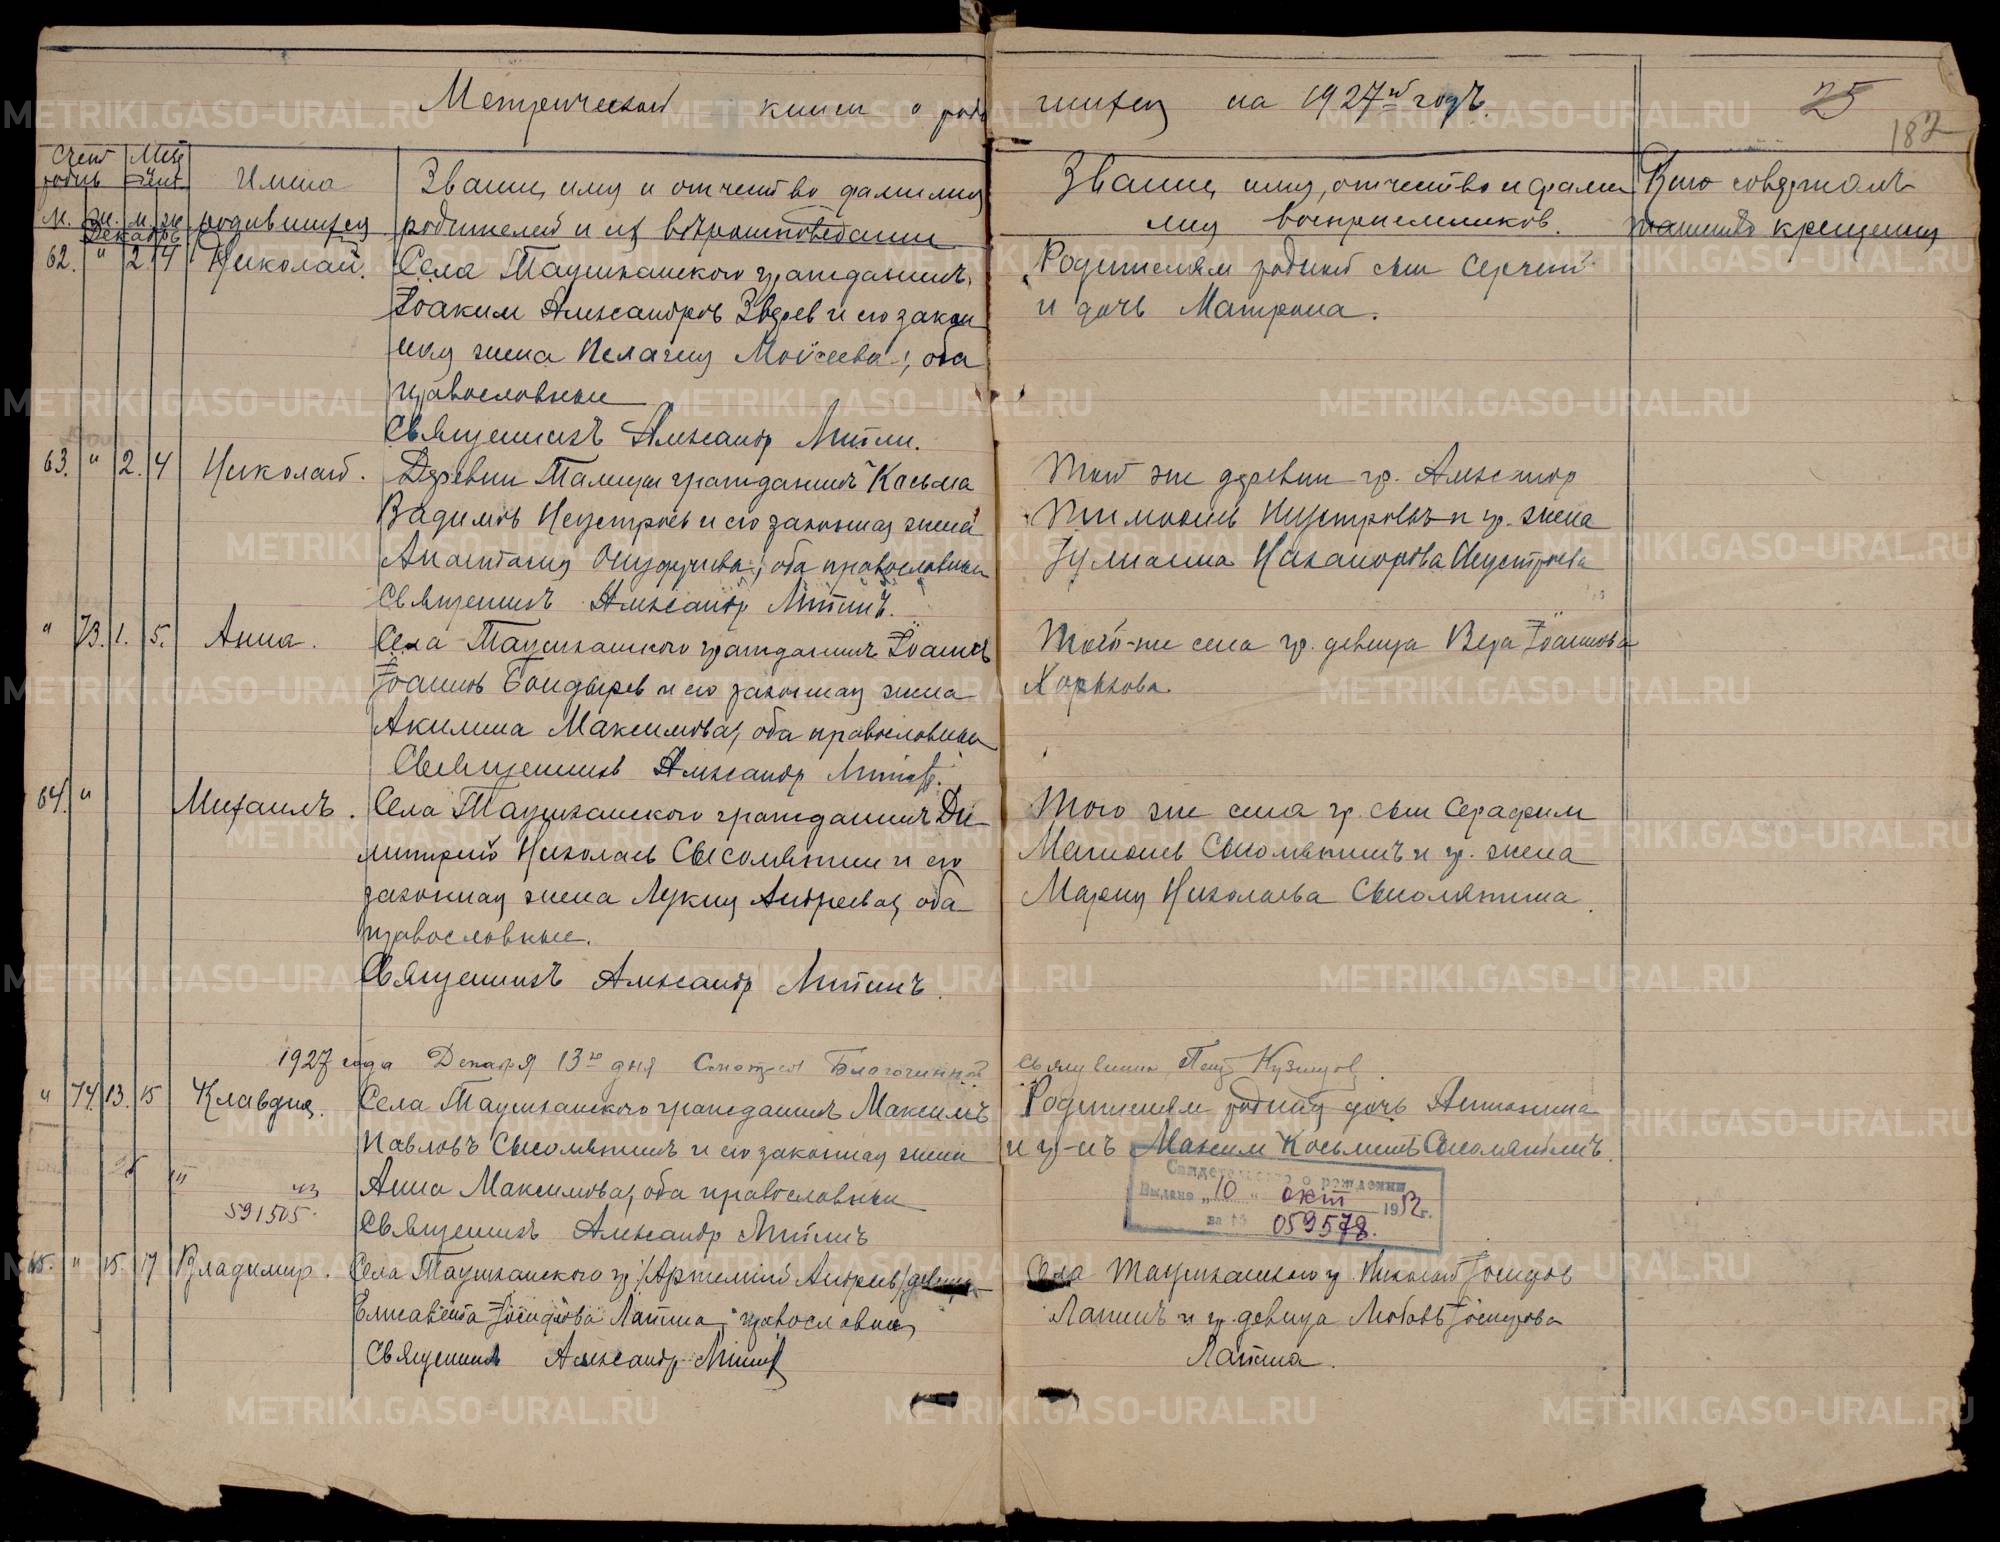 Метрической книги о родившихся на 1927й годъ.
25
182
Счет родив Меся
м. ж. м. ж
Имена родившихся
Звание, имя и отчество фамилия
родителей и их вероисповедания
Звание, имя, отчество и фами
лия восприемников.
Кто совершалъ
таинство крещения
Декабрь
62. " 2. 4 Николай.
Села Таушканского гражданинъ
Іоаким Александровъ и его закон
ная жена Пелагия Моисеева, оба
православные
Священникъ Александр
Родителям родной сын Сергей
и дочь Матрона.
63. " 2. 4 Николай.
Деревни гражданинъ Косьма
Вадимов Неустроев и его законная жена
Анастасия Онуфриева, оба православные
Священникъ Александр
Той же деревни гр. Александр
Неустроевъ и гр. жена
Иулиания Никанорова Неустроева
" 73. 1. 5. Анна.
Села Таушканского гражданинъ Іоаннъ
Іоаннов Бондырев и его законная жена
Акилина Максимова, оба православные
Священник Александр
Того-же села гр. девица Вера Іоаннова
Хорькова.
64. " Михаилъ.
Села Таушканского гражданинъ Ди-
митрий Николаев Сысолятин и его
законная жена Лукия Андреева, оба
православные.
Священникъ Александр
Того же села гр. сын Серафим
Сысолятинъ и гр. жена
Мария Николаева Сысолятина.
1927 года Декабря 13го дня Смотрел Благочинный
священник Петр Кузнецов
" 74. 13. 15 Клавдия.
Села Таушканского гражданинъ Максимъ
Павловъ Сысолятинъ и его законная жена
Анна Максимова, оба православные
Священникъ Александр
Родителям родная дочь Антонина
и гр-нъ Максим Косьминъ Сысолятинъ.
III
591505.
Свидетельство о рождении
Выдано „10" окт 1952 г.
за № 059578.
65. " 15. 17 Владимир.
Села Таушканского гр. /Артемий Андреев/ девица
Елисавета Іосифова Лапина, православная
Священник Александр
Села Таушканского гр. Николай Іосифов
Лапинъ и гр. девица Любовь Іосифова
Лапина.
METRIKI.GASO-URAL.RU